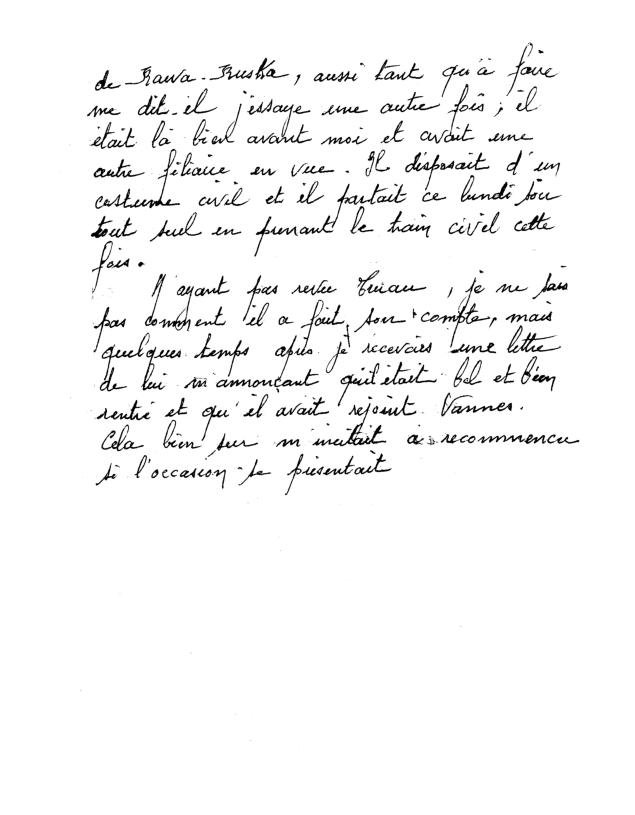 de Rawa-Ruska, aussi tant qu'à faire
me dit-il j'essaye une autre fois ; il
était là bien avant moi et avait une
autre filiaire en vue. Il disposait d'un
costume civil et il partait ce lundi soir
tout seul en prenant le train civil cette
fois.
N'ayant pas revu , je ne sais
pas comment il a fait, son compte, mais
quelques temps après je recevais une lettre
de lui m'annonçant qu'il était bel et bien
rentré et qu'il avait rejoint Vannes.
Cela bien sur m'incitait à recommencer
si l'occasion se présentait